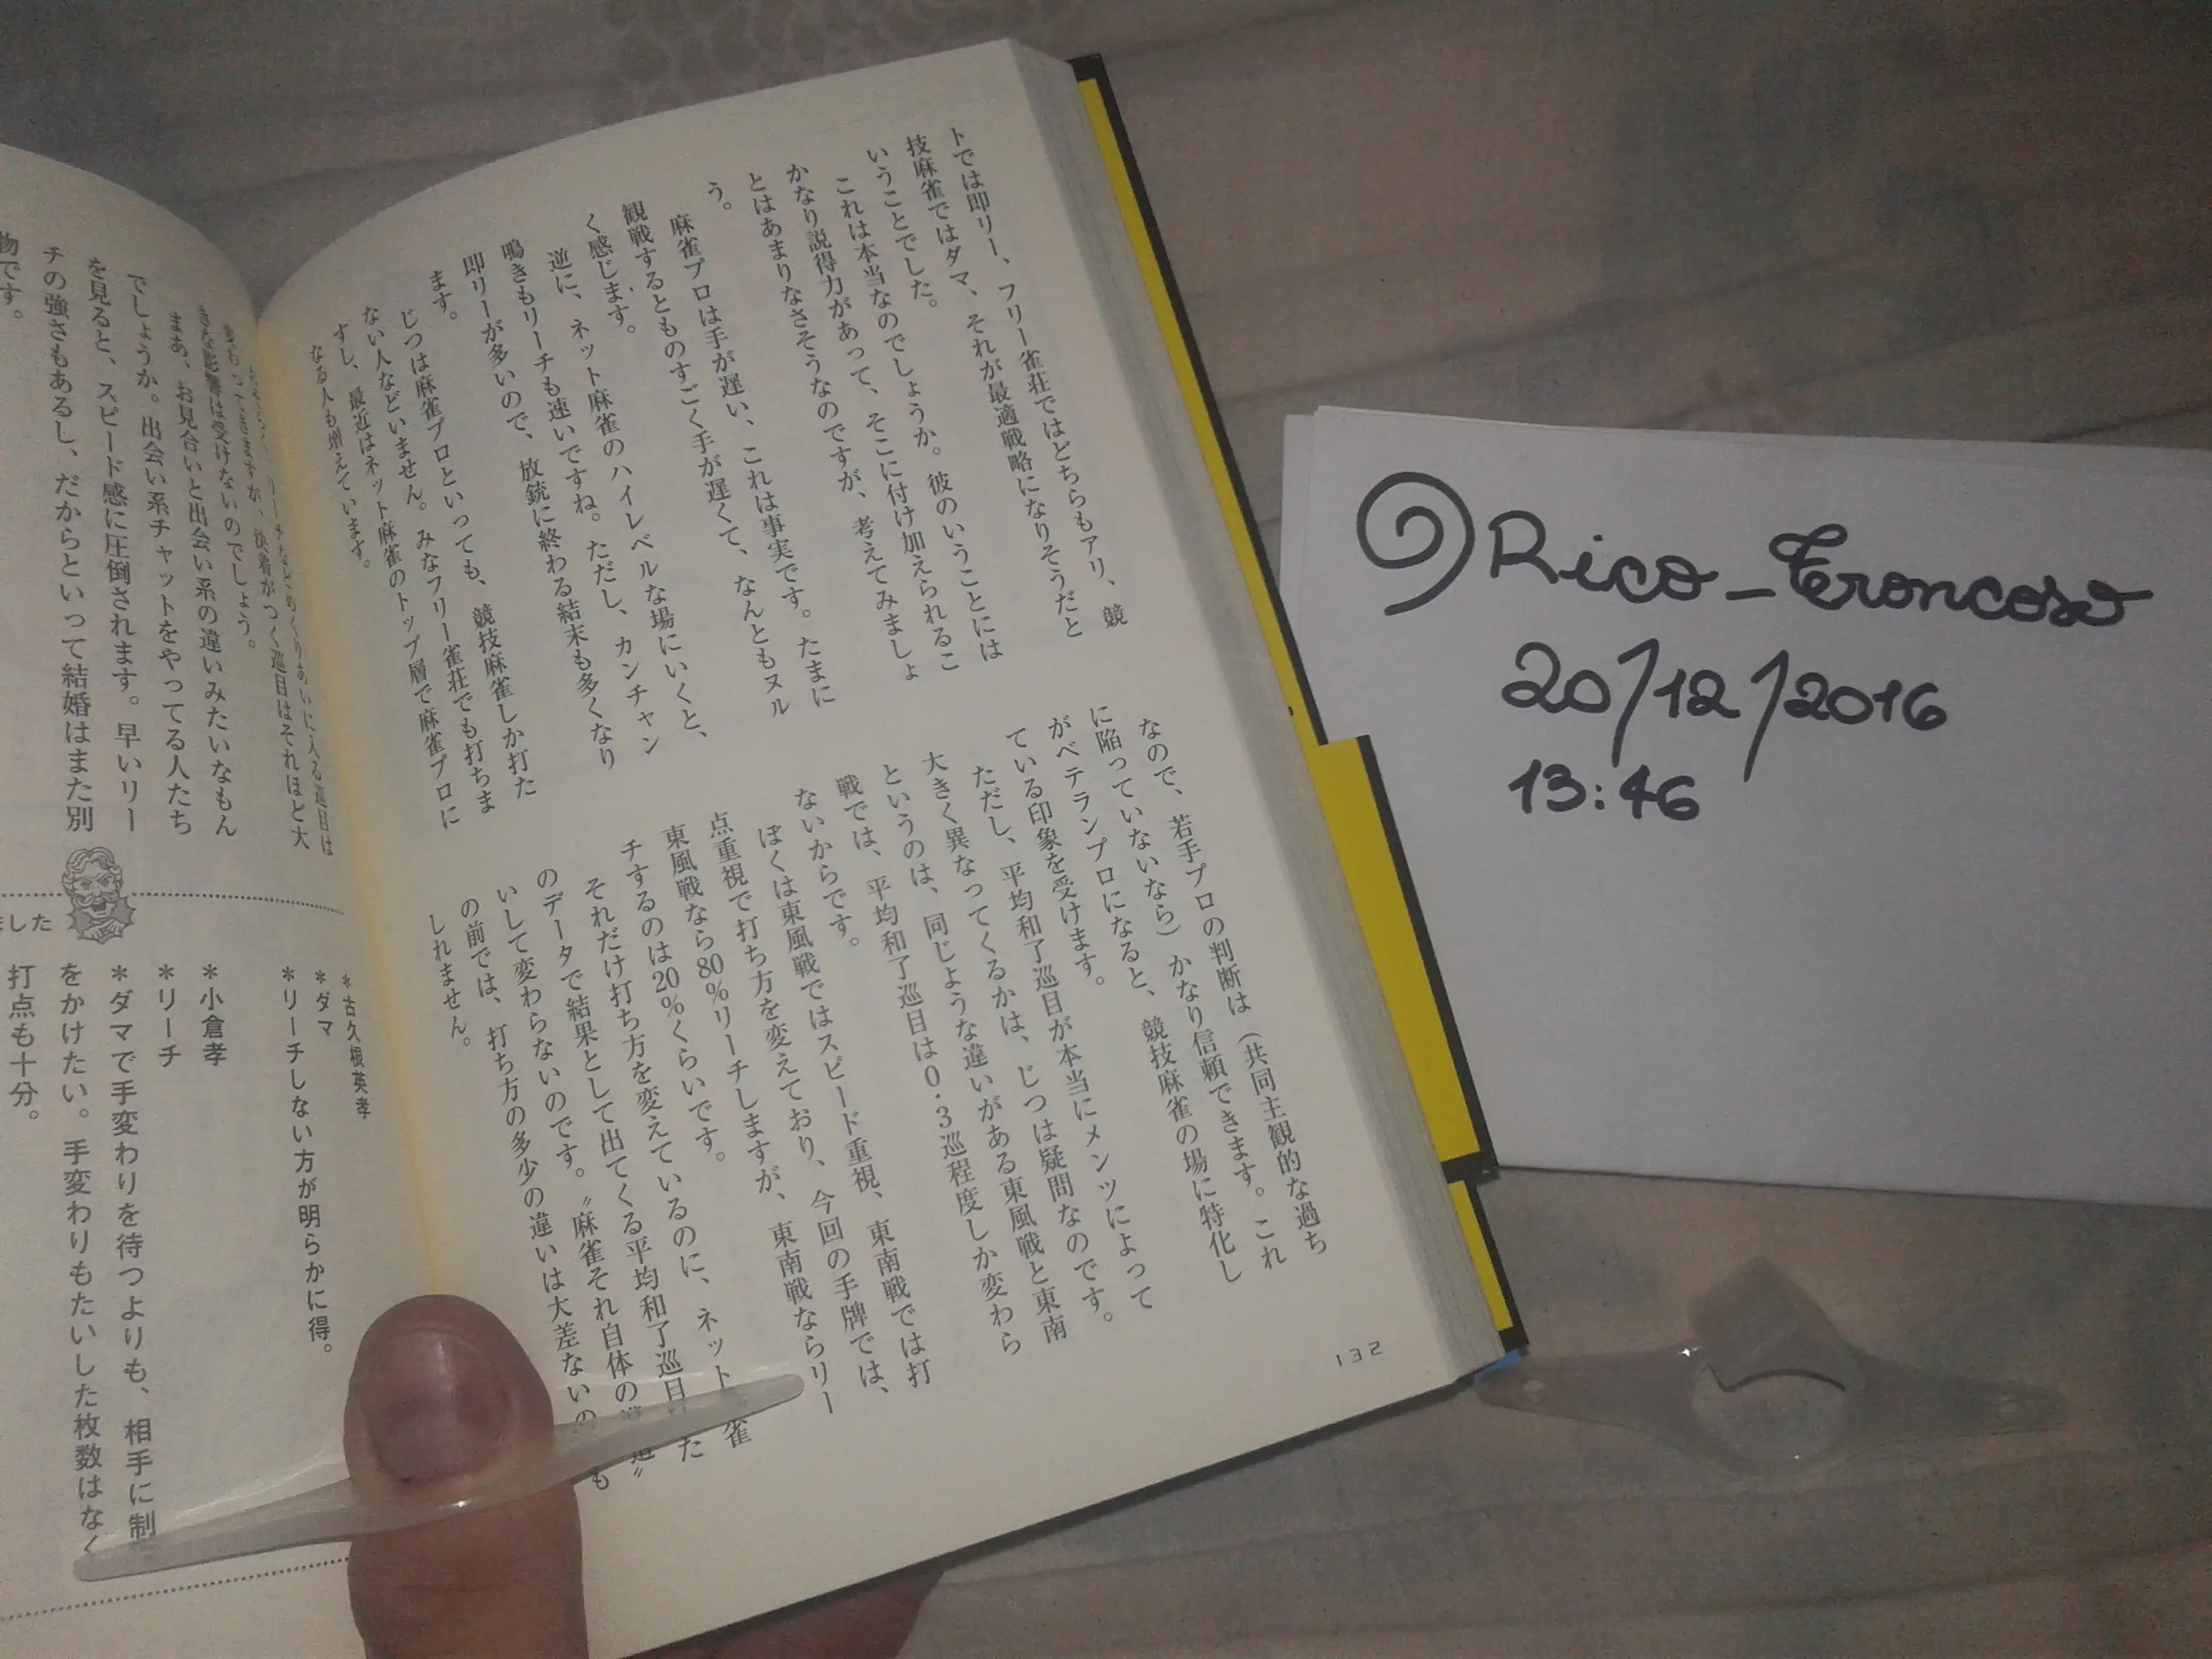 トでは即リー、フリー雀荘ではどちらもアリ、競
技麻雀ではダマ、それが最適戦略になりそうだと
いうことでした。
これは本当なのでしょうか。彼のいうことには
かなり説得力があって、そこに付け加えられるこ
とはあまりなさそうなのですが、考えてみましょ
う。
麻雀プロは手が遅い、これは事実です。たまに
観戦するとものすごく手が遅くて、なんともヌル
く感じます。
逆に、ネット麻雀のハイレベルな場にいくと、
鳴きもリーチも速いですね。ただし、カンチャン
即リーが多いので、放銃に終わる結末も多くなり
ます。
じつは麻雀プロといっても、競技麻雀しか打た
ない人などいません。みなフリー雀荘でも打ちま
すし、最近はネット麻雀のトップ層で麻雀プロに
なる人も増えています。
なので、若手プロの判断は(共同主観的な過ち
に陥っていないなら)かなり信頼できます。これ
がベテランプロになると、競技麻雀の場に特化し
ている印象を受けます。
ただし、平均和了巡目が本当にメンツによって
大きく異なってくるかは、じつは疑問なのです。
というのは、同じような違いがある東風戦と東南
戦では、平均和了巡目は0.3巡程度しか変わら
ないからです。
ぼくは東風戦ではスピード重視、東南戦では打
点重視で打ち方を変えており、今回の手牌では、
東風戦なら80%リーチしますが、東南戦ならリー
チするのは20%くらいです。
それだけ打ち方を変えているのに、ネット 雀
のデータで結果として出てくる平均和了巡目 た
いして変わらないのです。〝麻雀それ自体の 〟
の前では、打ち方の多少の違いは大差ないの も
しれません。
132
きな影響は受けないのでしょう。
まあ、お見合いと出会い系の違いみたいなもん
でしょうか。出会い系チャットをやってる人たち
を見ると、スピード感に圧倒されます。早いリー
チの強さもあるし、だからといって結婚はまた別
物です。
ました
*古久根英孝
*ダマ
*リーチしない方が明らかに得。
*小倉孝
*リーチ
*ダマで手変わりを待つよりも、相手に制
をかけたい。手変わりもたいした枚数はなく
打点も十分。
Rico_Troncoso
20/12/2016
13:46